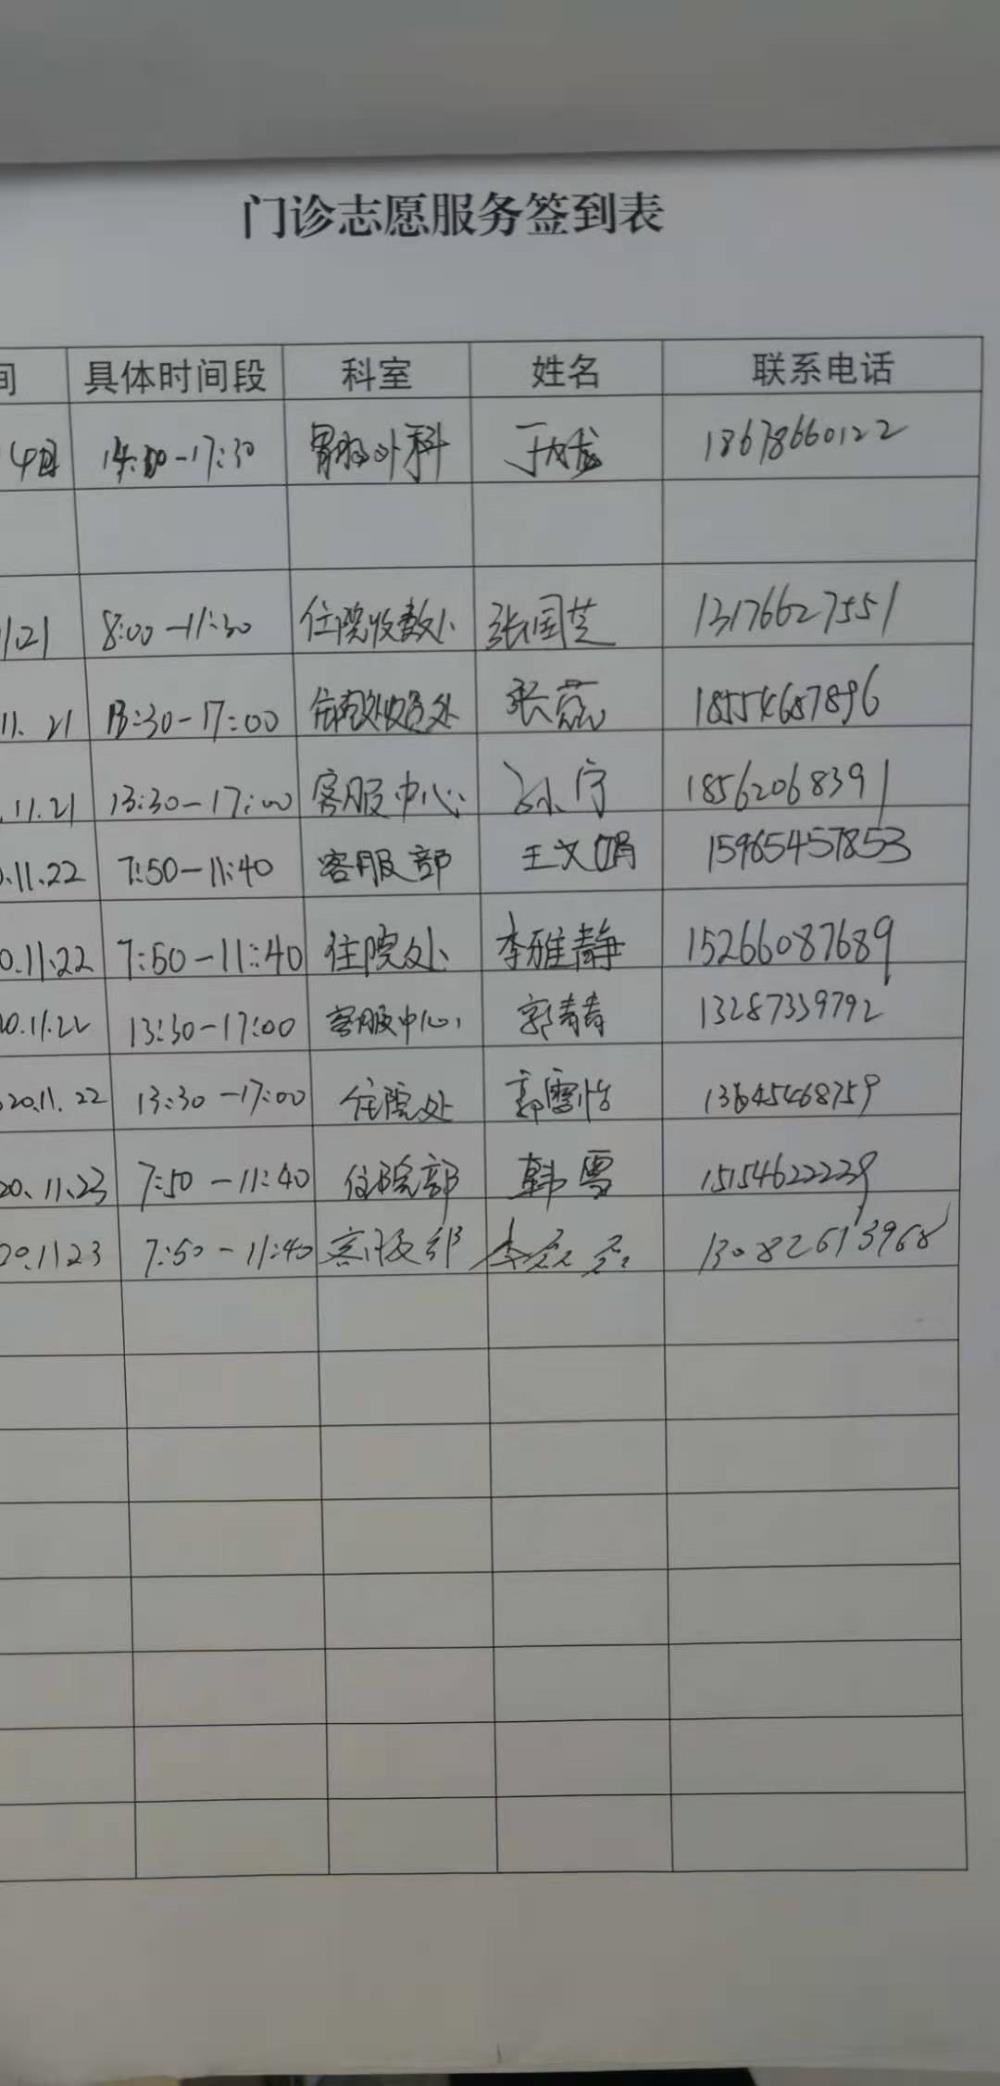 门诊志愿服务签到表
间 具体时间段 科室 姓名 联系电话
14:00-17:30 外科 于 18678660122
11.21 8:00-11:30 住院收款处 张国芝 13176627551
11.21 13:30-17:00 处 张蕊 18554687896
.11.21 13:30-17:00 客服中心 孙宁 18562068391
0.11.22 7:50-11:40 客服部 王文娟 15965457853
0.11.22 7:50-11:40 住院处 李雅静 15266087689
20.11.22 13:30-17:00 客服中心 郭青青 13287339792
20.11.22 13:30-17:00 住院处 郭雪怡 13645468759
20.11.23 7:50-11:40 住院部 韩雪 15154622239
20.11.23 7:50-11:40 客服部 李 13082613968